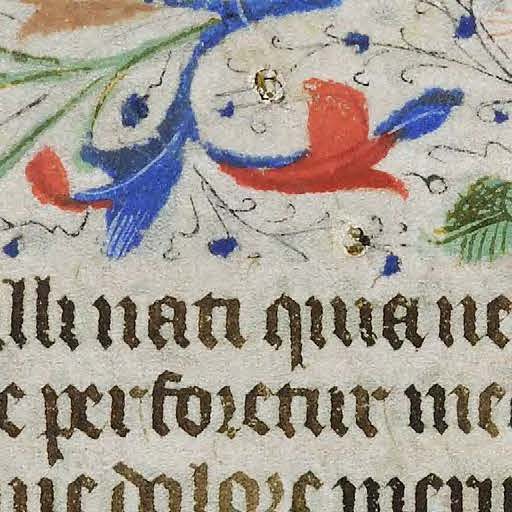 illi nati quia ne
c perforetur me
que dolore meru